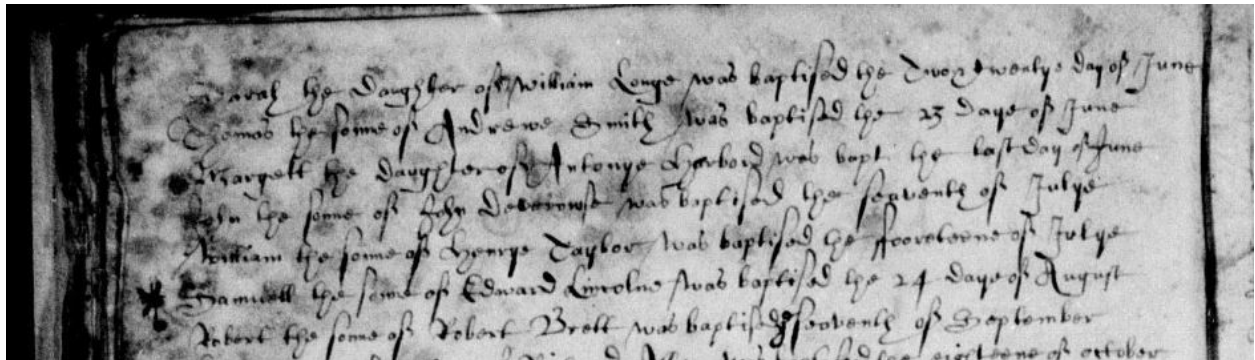 Sarah the Daughter of William Longe was baptised the Two & twentye day of June
Thomas the sonne of Andrewe Smith was baptised the 23 daye of June
Margett the daughter of Antonye Harbord was bapt the last day of June
John the sonne of John Deverowse was baptised the seaventh of Julye
William the sonne of Henrye Taylor was baptised the ffoorteene of Julye
Samuell the sonne of Edward Lincolne was baptised the 24 daye of August
Robert the sonne of Robert Brett was baptised ye seaventh of September
the eighteene of october